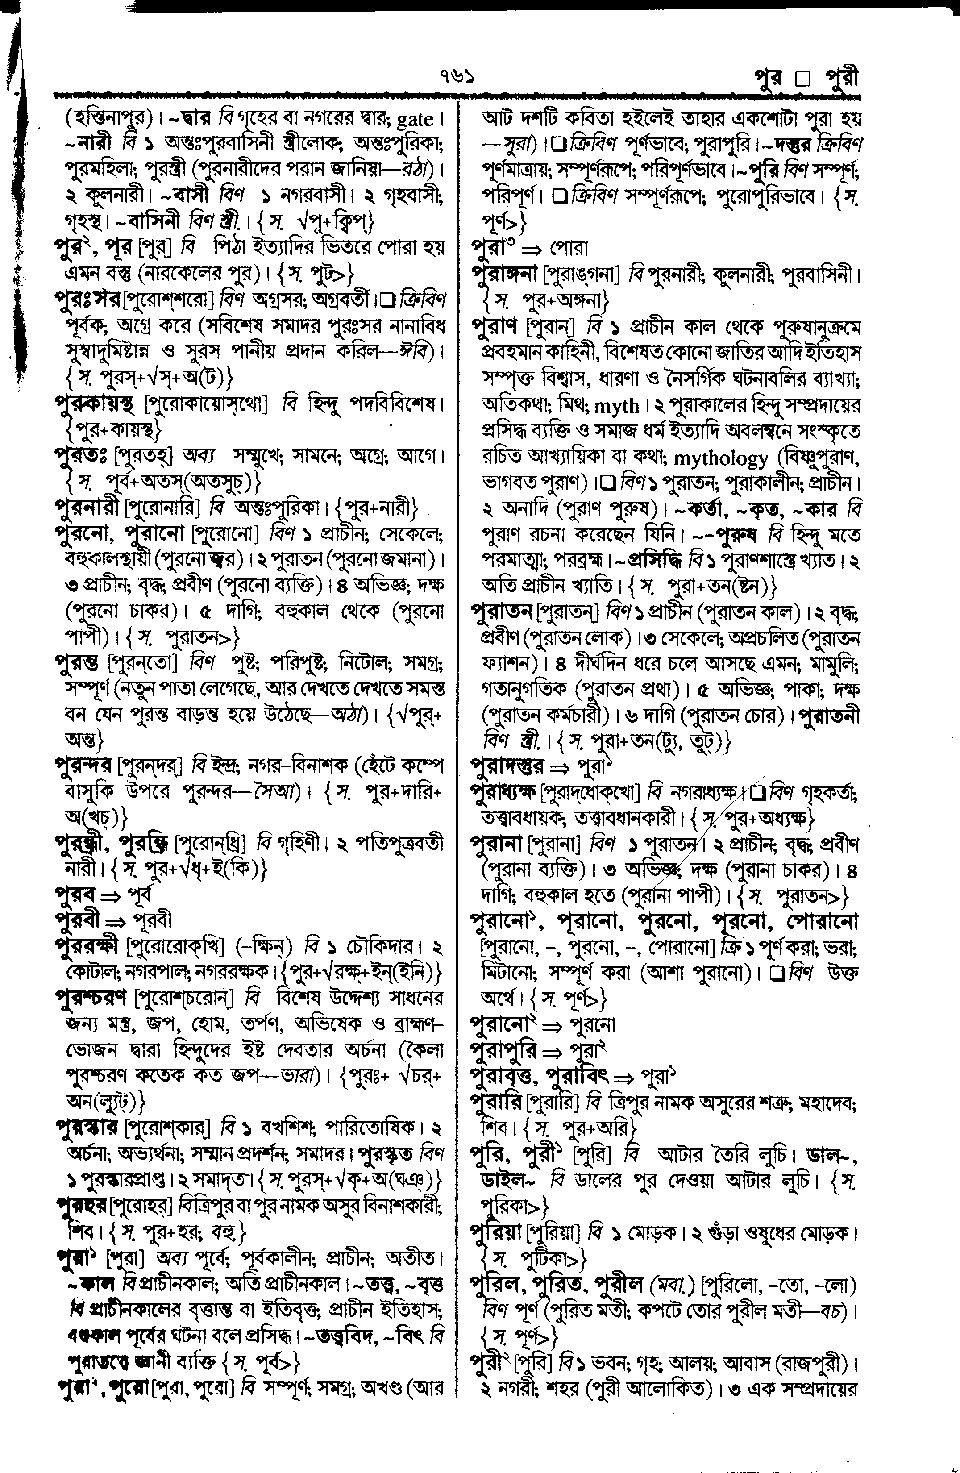 ৭৬১
পুর □ পুরী
(হস্তিনাপুর)। ~দ্বার বি গৃহের বা নগরের দ্বার; gate।
~নারী বি ১ অন্তঃপুরবাসিনী স্ত্রীলোক; অন্তঃপুরিকা;
পুরমহিলা; পুরস্ত্রী (পুরনারীদের পরান জানিয়া—রঠা)।
২ কূলনারী। ~বাসী বিণ ১ নগরবাসী। ২ গৃহবাসী;
গৃহস্থ। ~বাসিনী বিণ স্ত্রী.। {স. √পৃ+ক্বিপ্}
পুর২, পূর [পুর্] বি পিঠা ইত্যাদির ভিতরে পোরা হয়
এমন বস্তু (নারকেলের পুর)। {স. পুট>}
পুরঃসর [পুরোশ্‌শরো] বিণ অগ্রসর; অগ্রবর্তী। □ ক্রিবিণ
পূর্বক; অগ্রে করে (সবিশেষ সমাদর পুরঃসর নানাবিধ
সুস্বাদুমিষ্টান্ন ও সুরস পানীয় প্রদান করিল—ঈবি)।
{স. পুরস্+√সৃ+অ(ট)}
পুরকায়স্থ [পুরোকায়োস্‌থো] বি হিন্দু পদবিবিশেষ।
{পুর+কায়স্থ}
পুরতঃ [পুরতহ্] অব্য সম্মুখে; সামনে; অগ্রে; আগে।
{স. পূর্ব+অতস্(অতসুচ্)}
পুরনারী [পুরোনারি] বি অন্তঃপুরিকা। {পুর+নারী}
পুরনো, পুরানো [পুরোনো] বিণ ১ প্রাচীন; সেকেলে;
বহুকালস্থায়ী (পুরনো জ্বর)। ২ পুরাতন (পুরনো জমানা)।
৩ প্রাচীন; বৃদ্ধ; প্রবীণ (পুরনো ব্যক্তি)। ৪ অভিজ্ঞ; দক্ষ
(পুরনো চাকর)। ৫ দাগি; বহুকাল থেকে (পুরনো
পাপী)। {স. পুরাতন>}
পুরন্ত [পুরন্‌তো] বিণ পুষ্ট; পরিপুষ্ট; নিটোল; সমগ্র;
সম্পূর্ণ (নতুন পাতা লেগেছে, আর দেখতে দেখতে সমস্ত
বন যেন পুরন্ত বাড়ন্ত হয়ে উঠেছে—অঠা)। {√পুর্+
অন্ত}
পুরন্দর [পুরন্‌দর্] বি ইন্দ্র; নগর-বিনাশক (হেঁটে কম্পে
বাসুকি উপরে পুরন্দর—সৈআ)। {স. পুর+দারি+
অ(খচ্)}
পুরন্ধ্রী, পুরন্ধ্রি [পুরোন্‌ধ্রি] বি গৃহিণী। ২ পতিপুত্রবতী
নারী। {স. পুর+√ধৃ+ই(কি)}
পুরব ⇒ পূর্ব
পুরবী ⇒ পূরবী
পুররক্ষী [পুরোরোক্‌খি] (-ক্ষিন্) বি ১ চৌকিদার। ২
কোটাল; নগরপাল; নগররক্ষক। {পুর+√রক্ষ্+ইন্(ইনি)}
পুরশ্চরণ [পুরোশ্‌চরোন্] বি বিশেষ উদ্দেশ্য সাধনের
জন্য মন্ত্র, জপ, হোম, তর্পণ, অভিষেক ও ব্রাহ্মণ-
ভোজন দ্বারা হিন্দুদের ইষ্ট দেবতার অর্চনা (কৈলা
পুরশ্চরণ কতেক কত জপ—ভারা)। {পুরঃ+ √চর্+
অন(ল্যুট্)}
পুরস্কার [পুরোশ্‌কার্] বি ১ বখশিশ; পারিতোষিক। ২
অর্চনা; অভ্যর্থনা; সম্মান প্রদর্শন; সমাদর। পুরস্কৃত বিণ
১ পুরস্কারপ্রাপ্ত। ২ সমাদৃত। {স. পুরস্+√কৃ+অ(ঘঞ্)}
পুরহর [পুরোহর্] বি ত্রিপুর বা পুর নামক অসুর বিনাশকারী;
শিব। {স. পুর+হর; বহু}
পুরা১ [পুরা] অব্য পূর্বে; পূর্বকালীন; প্রাচীন; অতীত।
~কাল বি প্রাচীনকাল; অতি প্রাচীনকাল। ~তত্ত্ব, ~বৃত্ত
বি প্রাচীনকালের বৃত্তান্ত বা ইতিবৃত্ত; প্রাচীন ইতিহাস;
বহুকাল পূর্বের ঘটনা বলে প্রসিদ্ধ। ~তত্ত্ববিদ, ~বিৎ বি
পুরাতত্ত্বে জ্ঞানী ব্যক্তি {স. পূর্ব>}
পুরা২, পুরো [পুরা, পুরো] বি সম্পূর্ণ; সমগ্র; অখণ্ড (আর
আট দশটি কবিতা হইলেই তাহার একশোটা পুরা হয়
—সুরা)। □ ক্রিবিণ পূর্ণভাবে; পুরাপুরি। ~দস্তুর ক্রিবিণ
পূর্ণমাত্রায়; সম্পূর্ণরূপে; পরিপূর্ণভাবে। ~পুরি বিণ সম্পূর্ণ;
পরিপূর্ণ। □ ক্রিবিণ সম্পূর্ণরূপে; পুরোপুরিভাবে। {স.
পূর্ণ>}
পুরা৩ ⇒ পোরা
পুরাঙ্গনা [পুরাঙ্‌গনা] বি পুরনারী; কূলনারী; পুরবাসিনী।
{স. পুর+অঙ্গনা}
পুরাণ [পুরান্] বি ১ প্রাচীন কাল থেকে পুরুষানুক্রমে
প্রবহমান কাহিনী, বিশেষত কোনো জাতির আদি ইতিহাস
সম্পৃক্ত বিশ্বাস, ধারণা ও নৈসর্গিক ঘটনাবলির ব্যাখ্যা;
অতিকথা; মিথ; myth। ২ পুরাকালের হিন্দু সম্প্রদায়ের
প্রসিদ্ধ ব্যক্তি ও সমাজ ধর্ম ইত্যাদি অবলম্বনে সংস্কৃতে
রচিত আখ্যায়িকা বা কথা; mythology (বিষ্ণুপুরাণ,
ভাগবত পুরাণ)। □ বিণ ১ পুরাতন; পুরাকালীন; প্রাচীন।
২ অনাদি (পুরাণ পুরুষ)। ~কর্তা, ~কৃত, ~কার বি
পুরাণ রচনা করেছেন যিনি। ~-পুরুষ বি হিন্দু মতে
পরমাত্মা; পরব্রহ্ম। ~প্রসিদ্ধি বি ১ পুরাণশাস্ত্রে খ্যাত। ২
অতি প্রাচীন খ্যাতি। {স. পুরা+তন(ষ্টন)}
পুরাতন [পুরাতন্] বিণ ১ প্রাচীন (পুরাতন কাল)। ২ বৃদ্ধ;
প্রবীণ (পুরাতন লোক)। ৩ সেকেলে; অপ্রচলিত (পুরাতন
ফ্যাশন)। ৪ দীর্ঘদিন ধরে চলে আসছে এমন; মামুলি;
গতানুগতিক (পুরাতন প্রথা)। ৫ অভিজ্ঞ; পাকা; দক্ষ
(পুরাতন কর্মচারী)। ৬ দাগি (পুরাতন চোর)। পুরাতনী
বিণ স্ত্রী.। {স. পুরা+তন(ট্যু, তুট্)}
পুরাদস্তুর ⇒ পুরা১
পুরাধ্যক্ষ [পুরাদ্‌ধোক্‌খো] বি নগরাধ্যক্ষ। □ বিণ গৃহকর্তা;
তত্ত্বাবধায়ক; তত্ত্বাবধানকারী। {স. পুর+অধ্যক্ষ}
পুরানা [পুরানা] বিণ ১ পুরাতন। ২ প্রাচীন; বৃদ্ধ; প্রবীণ
(পুরানা ব্যক্তি)। ৩ অভিজ্ঞ; দক্ষ (পুরানা চাকর)। ৪
দাগি; বহুকাল হতে (পুরানা পাপী)। {স. পুরাতন>}
পুরানো১, পূরানো, পুরনো, পূরনো, পোরানো
[পুরানো, -, পুরনো, -, পোরানো] ক্রি ১ পূর্ণ করা; ভরা;
মিটানো; সম্পূর্ণ করা (আশা পুরানো)। □ বিণ উক্ত
অর্থে। {স. পূর্ণ>}
পুরানো২ ⇒ পুরনো
পুরাপুরি ⇒ পুরা২
পুরাবৃত্ত, পুরাবিৎ ⇒ পুরা১
পুরারি [পুরারি] বি ত্রিপুর নামক অসুরের শত্রু, মহাদেব;
শিব। {স. পুর+অরি}
পুরি, পুরী১ [পুরি] বি আটার তৈরি লুচি। ডাল~,
ডাইল~ বি ডালের পুর দেওয়া আটার লুচি। {স.
পুরিকা>}
পুরিয়া [পুরিয়া] বি ১ মোড়ক। ২ গুঁড়া ওষুধের মোড়ক।
{স. পুটিকা>}
পুরিল, পুরিত, পুরীল (মবা.) [পুরিলো, -তো, -লো]
বিণ পূর্ণ (পুরিত মতী; কপটে তোর পুরীল মতী—বচ)।
{স. পূর্ণ>}
পুরী২ [পুরি] বি ১ ভবন; গৃহ; আলয়; আবাস (রাজপুরী)।
২ নগরী; শহর (পুরী আলোকিত)। ৩ এক সম্প্রদায়ের